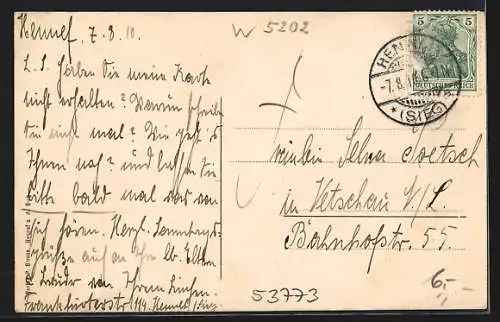 Hennef, 7.8.10.
L. S. Haben Sie meine Karte
nicht erhalten? Warum schreiben
Sie nicht mal? Wie geht's
Ihnen noch? und lassen Sie
bitte bald mal was von
sich hören. Herzl. Sonntags-
grüße auch an Ihre lb. Eltern
Bruder von Ihrem
Frankfurterstr 114. Hennef /Sieg
W 5202
5 5
DEUTSCHES REICH
HENNEF
-7.8.10
* (SIEG)
Fräulein Selma
in Vetschau N/L.
Bahnhofstr. 55.
53773
6,-